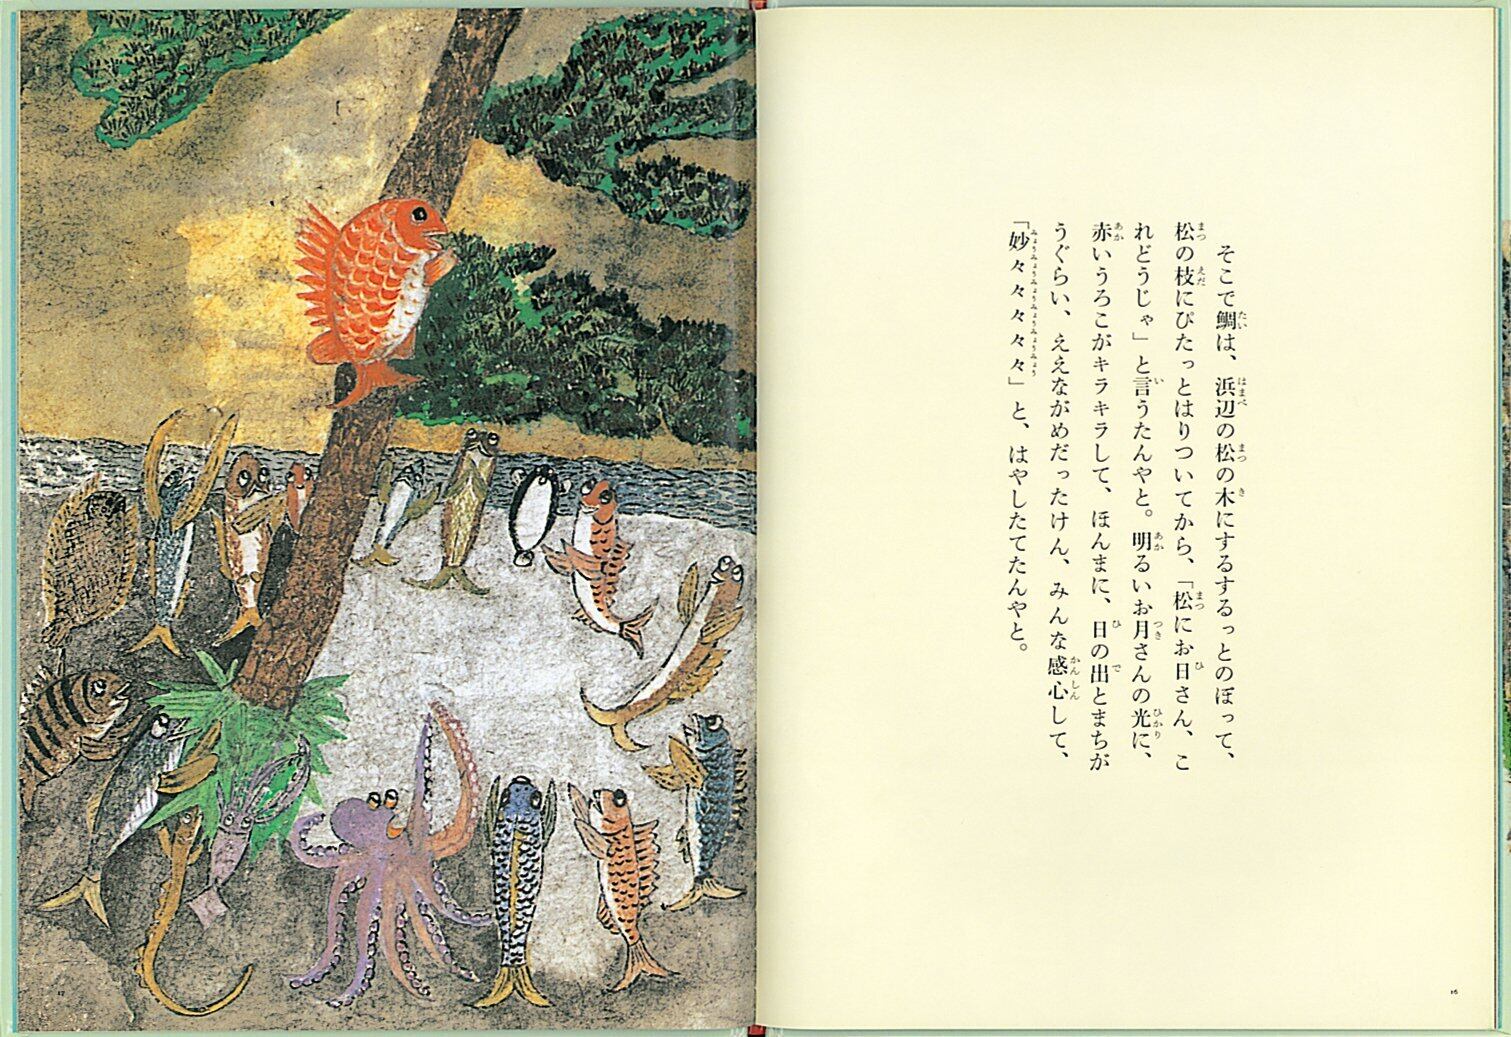 そこで鯛は、浜辺の松の木にするするっとのぼって、
松の枝にぴたっとはりついてから、「松にお日さん、こ
れどうじゃ」と言うたんやと。明るいお月さんの光に、
赤いうろこがキラキラして、ほんまに、日の出とまちが
うぐらい、ええながめだったけん、みんな感心して、
「妙々々々々々」と、はやしたてたんやと。
16
17